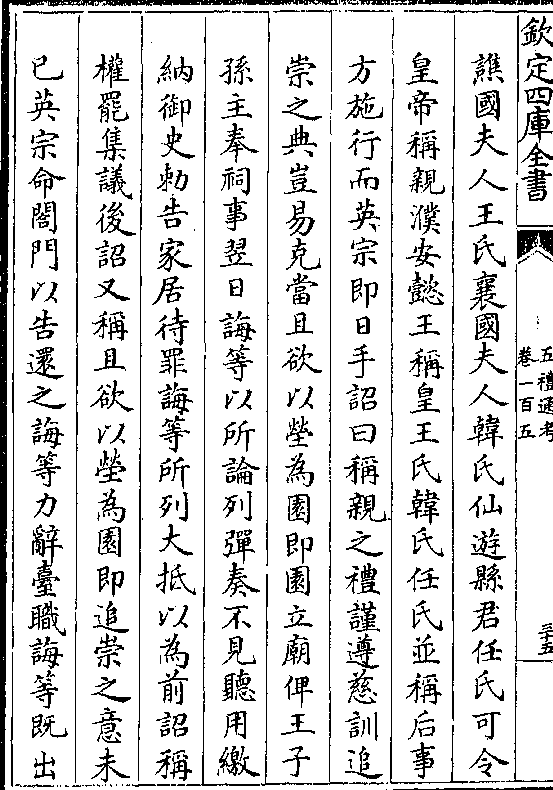 欽定四庫全書
五禮通考
卷一百五
三十五
譙國夫人王氏襄國夫人韓氏仙遊縣君任氏可令
皇帝稱親濮安懿王稱皇王氏韓氏任氏並稱后事
方施行而英宗即日手詔曰稱親之禮謹遵慈訓追
崇之典豈易克當且欲以塋為園即園立廟俾王子
孫主奉祠事翌日誨等以所論列彈奏不見聽用繳
納御史勅告家居待罪誨等所列大抵以為前詔稱
權罷集議後詔又稱且欲以塋為園即追崇之意未
已英宗命閤門以告還之誨等力辭臺職誨等既出